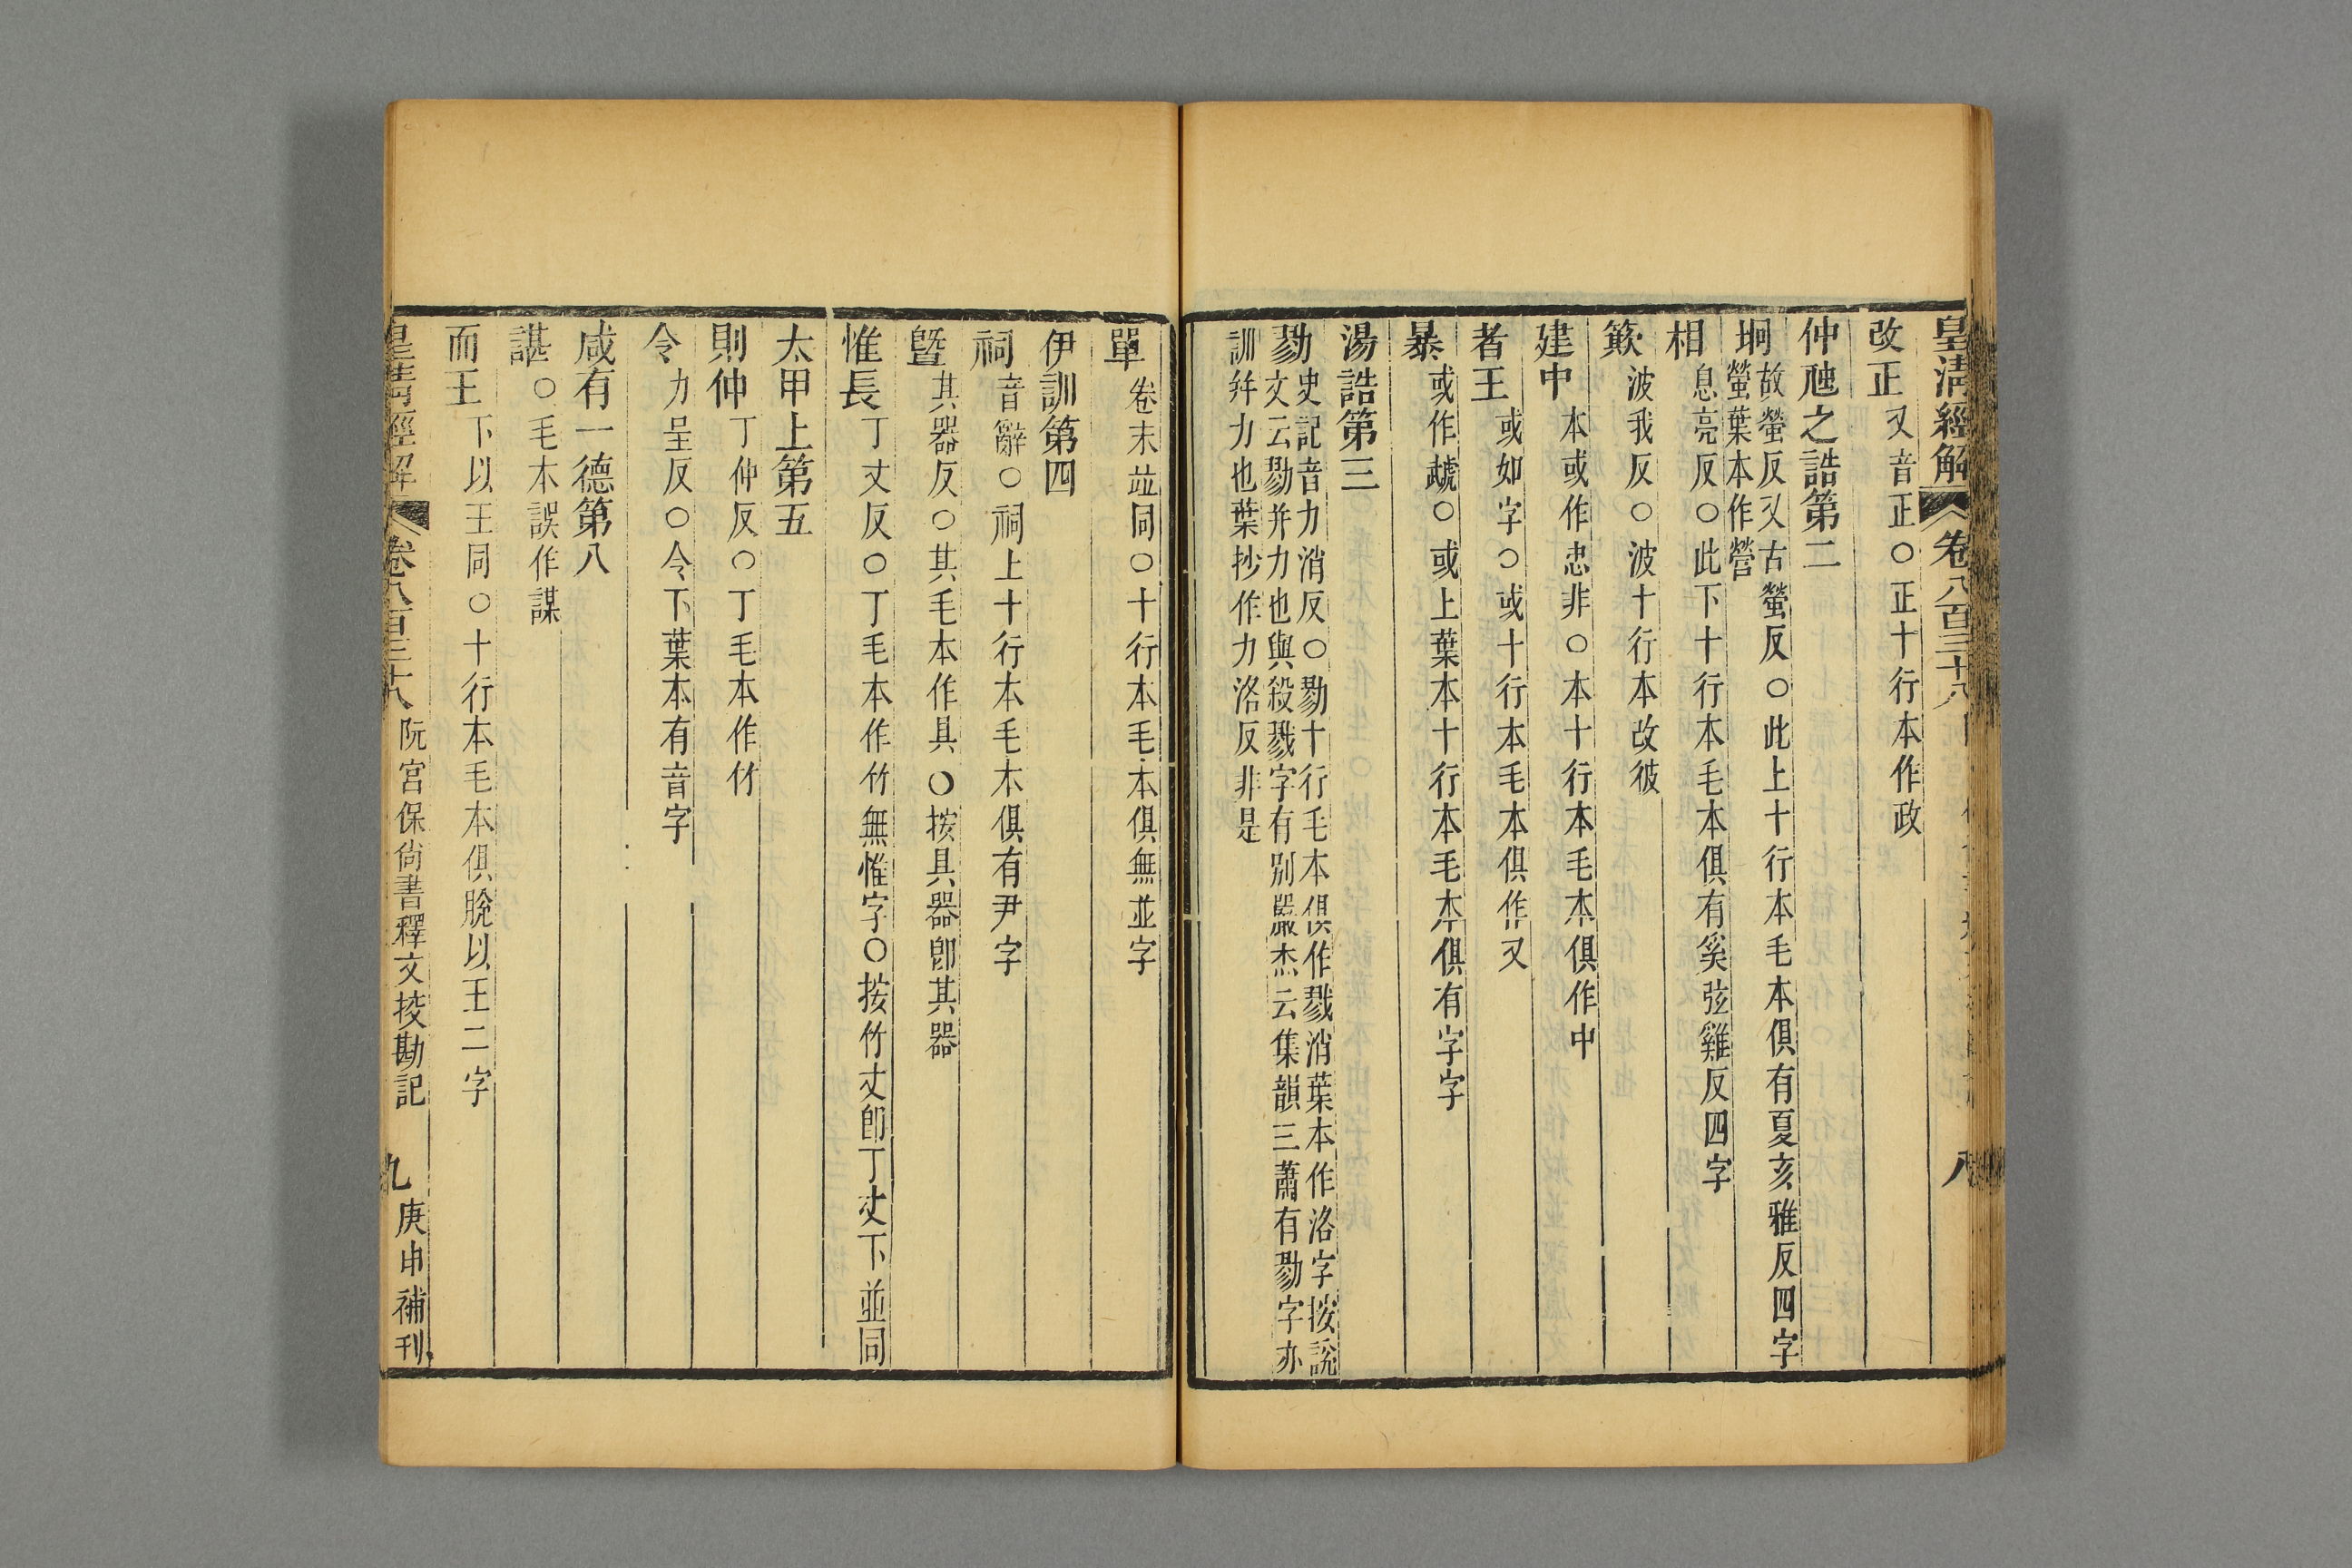 皇清經解 卷八百三十八 八
改正 又音正○正十行本作政
仲虺之誥第二
坰 故螢反又古螢反○此上十行本毛本俱有夏亥雅反四字
螢葉本作營
相 息亮反○此下十行本毛本俱有奚弦雞反四字
簸 波我反○波十行本改彼
建中 本或作忠非○本十行本毛本俱作中
者王 或如字○或十行本毛本俱作又
暴 或作虣○或上葉本十行本毛本俱有字字
湯誥第三
勠 史記音力消反○勠十行毛本俱作戮消葉本作洛字按說
文云勠并力也與殺戮字有別嚴杰云集韻三蕭有勠字亦
訓幷力也葉抄作力洛反非是
單 卷末並同○十行本毛本俱無並字
伊訓第四
祠 音辭○祠上十行本毛本俱有尹字
曁 其器反○其毛本作具○按具器卽其器
惟長 丁丈反○丁毛本作竹無惟字○按竹丈卽丁丈下並同
太甲上第五
則仲 丁仲反○丁毛本作竹
令 力呈反○令下葉本有音字
咸有一德第八
諶 ○毛本誤作謀
而王 下以王同○十行本毛本俱脫以王二字
皇清經解 卷八百三十八 阮宮保尙書釋文挍勘記 九 庚申補刊